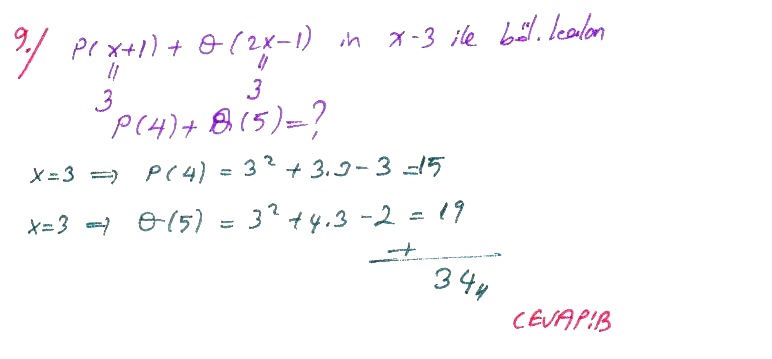 9./ P(x+1) + Q(2x-1) in x-3 ile böl. kalan
" "
3 3
P(4) + Q(5) = ?
x=3 ⇒ P(4) = 3² + 3.3 - 3 = 15
x=3 ⇒ Q(5) = 3² + 4.3 - 2 = 19
+
34,,
CEVAP:B